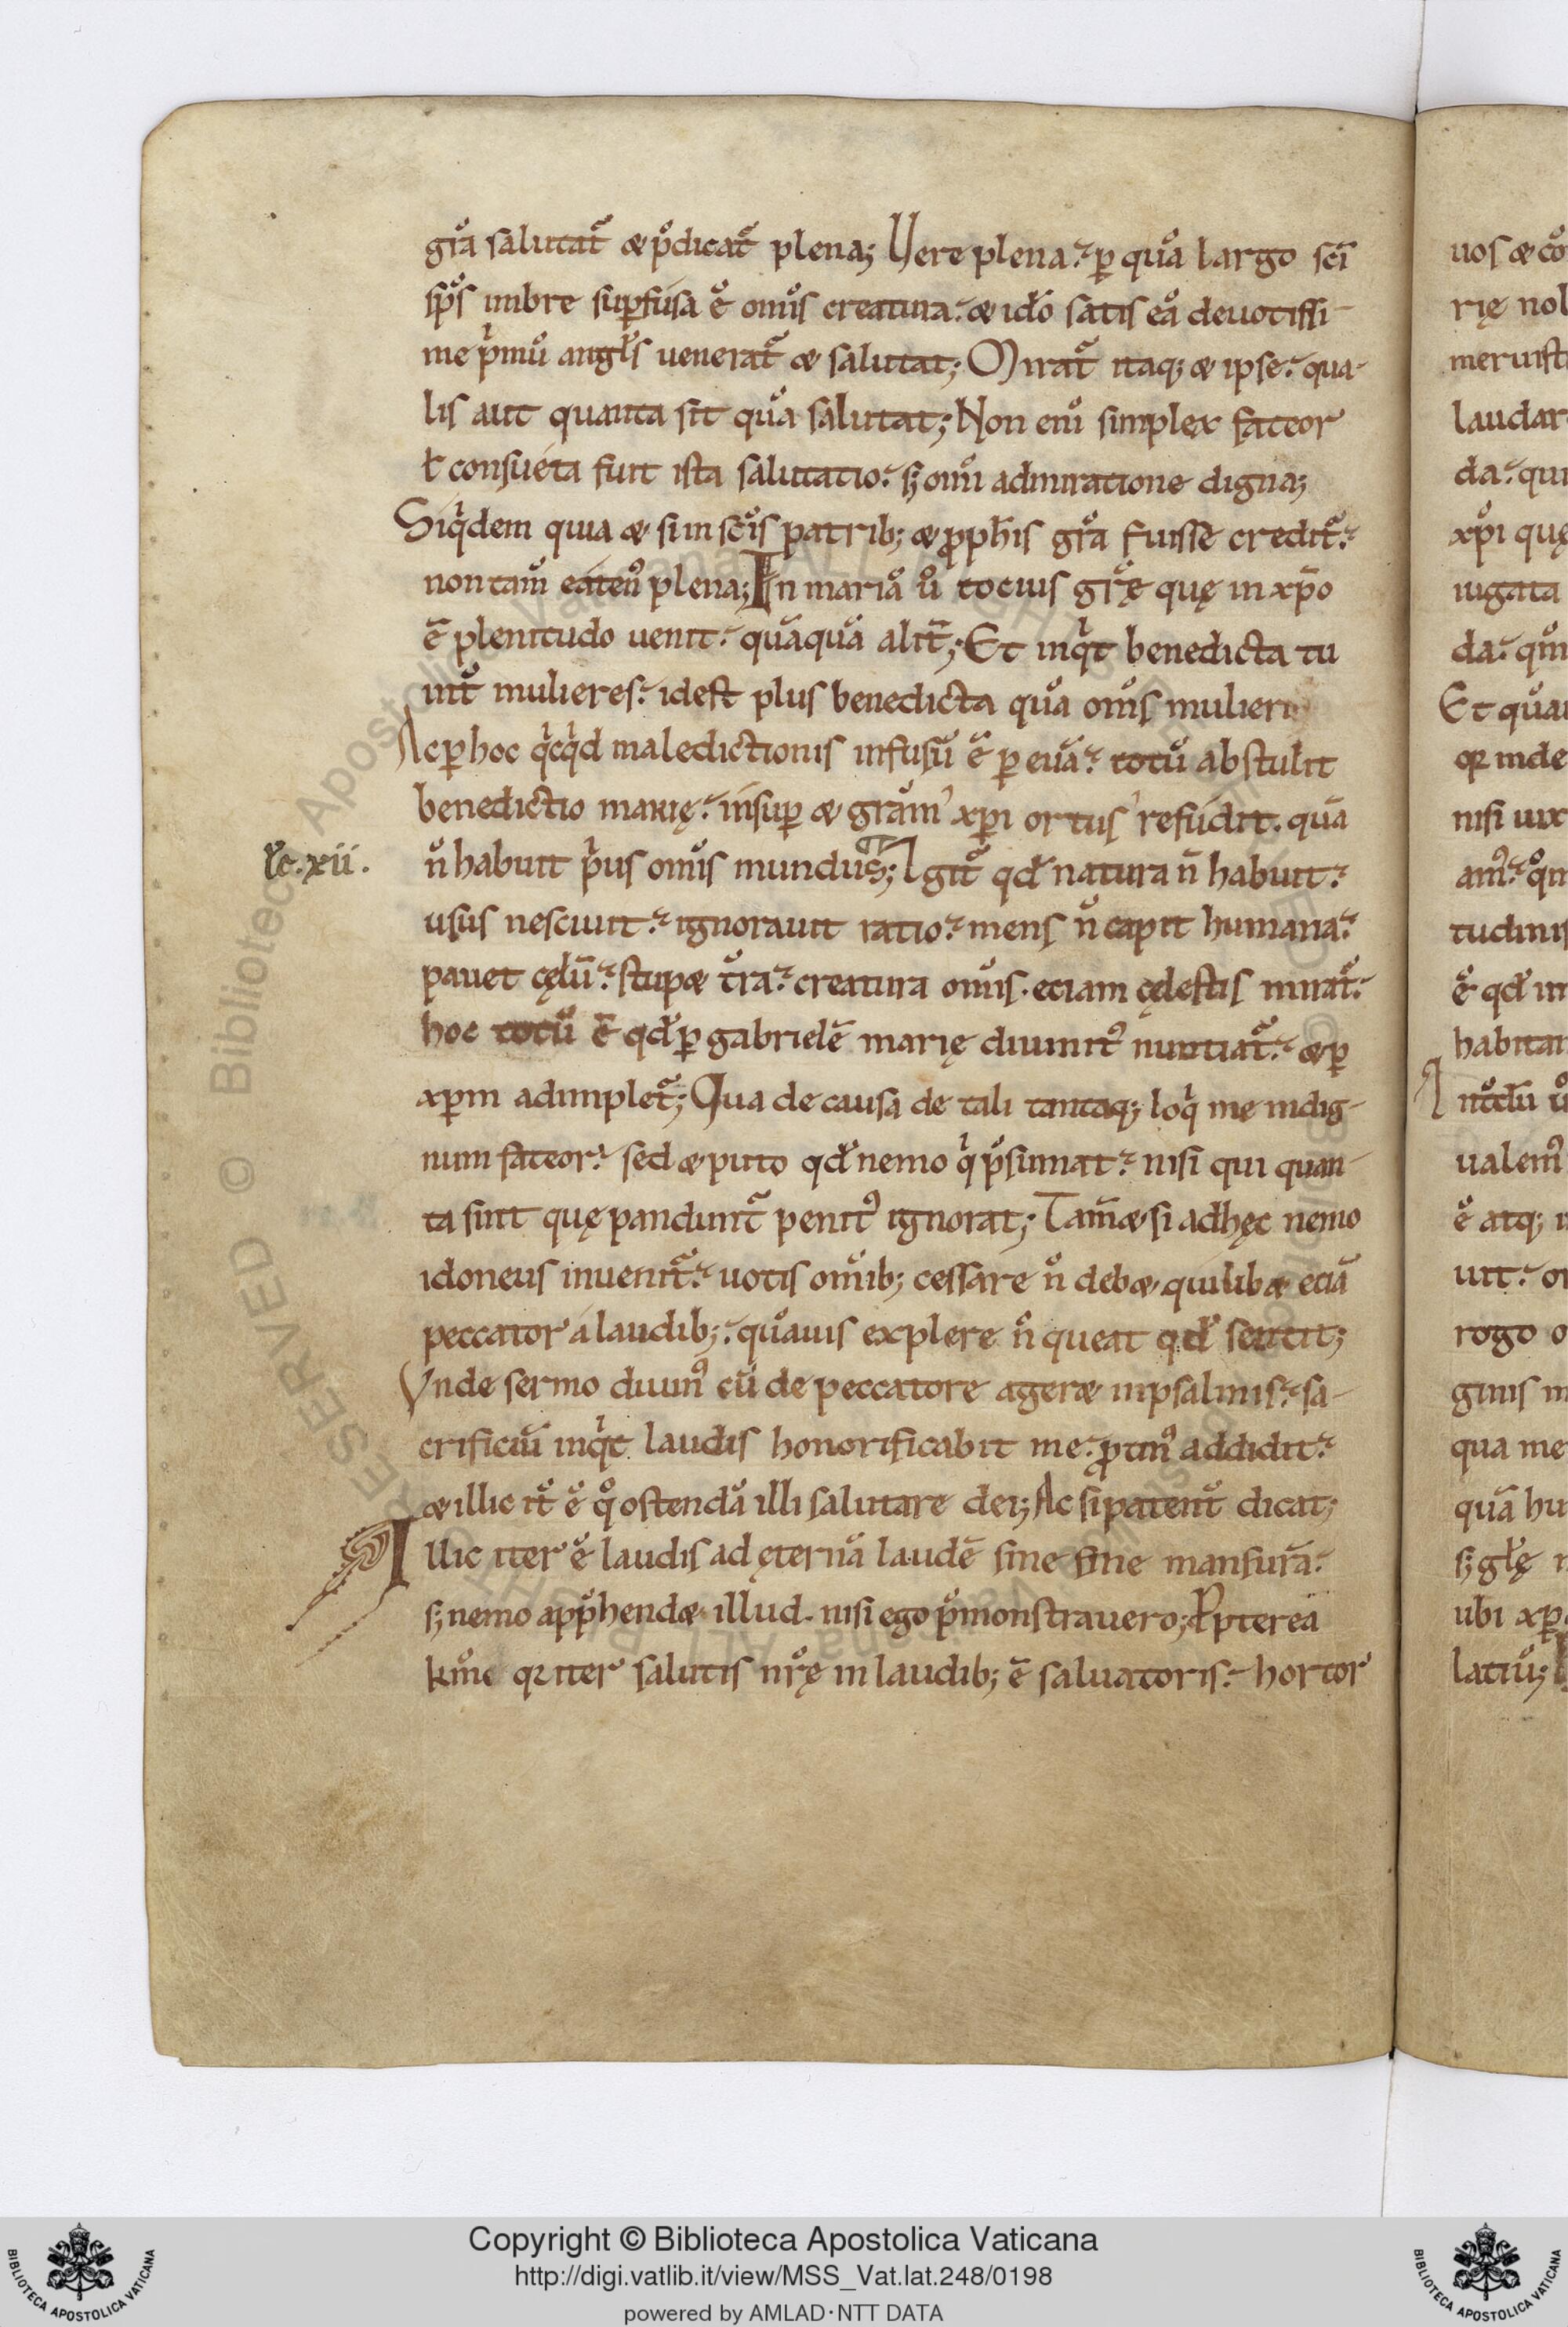 gr̄a salutat̄ & p̄dicat̄ plena; Vere plena. ꝑ quā largo sc̄i
sp̄s imbre suꝑfusa ē om̄is creatura. & ido satis eā deuotissi-
me p̍mū angl̄s uenerat̄ & salutat; Mirat̄ itaq; & ipse. qua-
lis aut quanta sit quā salutat; Non eni̅ simplex fateor
ł consuéta fuit ista salutatio. s; om̄i admiratione digna;
Siq̍dem quia & si in sc̄is patrib; & ꝓph̄is gr̄a fuisse credit̄.
non tam̄ eáten᾿ plena; In mariā ū tocius gr̄ę quę in xp̄o
ē plenitudo uenit. quāquā alit̄; Et inq̍t benedicta tu
int̄ mulieres. idest plus benedicta quā om̄s mulier
Ac ꝑ hoc q̍cq̍d maledictionis infusū ē ꝑ euā. totū abstulit
benedictio marię. ínsuꝑ & grām̕ xp̄i ortus̕ refúdit. quā
lc̄. xii. n̄ habuit p̍us om̄is mundus; Igit̄ qđ natura n̄ habuit.
usus nesciuit. ignorauit ratio. mens n̄ capit humana.
pauet cęlū. stup& t̄ra. creatura om̄is. eciam cęlestis mirat̄.
hoc totū ē qđ ꝑ gabrielē marię diuinit᾿ nuntiat̄. & ꝑ
xp̄m adimplet̄; Qua de causa de tali tantaq; loq̍ me indig-
num fateor. sed & puto qđ nemo q̍ p̄sumat. nisi qui quan-
ta sint quę pandunt̄ penit᾿ ignorat; Tam̄ & si ad hęc nemo
idoneus inuenit̄. uotis om̄ib; cessare n̄ deb& quilib& eciā
peccator á laudib;. quāuis explere n̄ queat qđ sentit;
Vnde sermo diuin᾿ cū de peccatore ager& in psalmis. sa-
crificiū inq̍t laudis honorificabit me. ꝓtin᾿ addidit.
& illic it̄ ē q° ostendā illi salutare dei; Ac si patent̄ dicat;
Illic iter ē laudis ad ęternā laudē sine fine mansurā.
s; nemo app̄hend& illud. nisi ego p̄monstrauero; Ppterea
km̄i qꝛ iter salutis nr̄ę in laudib; ē saluatoris. hortor
uos & cō
rię nol
meruist
laudar
da. qui
xp̄i quę
iugata
da. qm̄
Et quā
qꝛ inde
nisi uix
am᾿. qm̄
tudinis
ē qđ in
habitar
ualem᾿
ē atq;
uit. or
rogo o
ginis in
qua me
quā hu
s; gl̄ę
ubi xp̄
latiū;
Copyright © Biblioteca Apostolica Vaticana
http://digi.vatlib.it/view/MSS_Vat.lat.248/0198
powered by AMLAD·NTT DATA
BIBLIOTECA APOSTOLICA VATICANA
BIBLIOTECA APOSTOLICA VATICANA